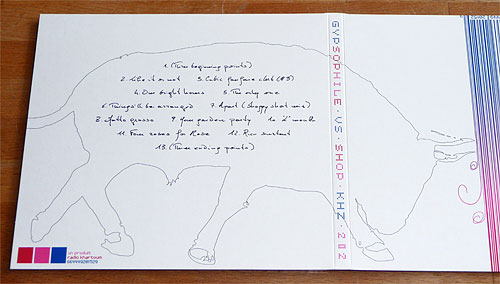 1. (Three beginning points)
2. Like it or not 3. Cubic fanfare club (#3)
4. Our bright hours 5. The only one
6. Things to be arranged 7. Apart (shoppy shot mix)
8. 9. Your garden party 10.
11. Four roses for Rose 12. Run
13. (Three ending points)
GYPSOPHILE·VS·SHOP·KHZ·202
un produit
radio khartoum